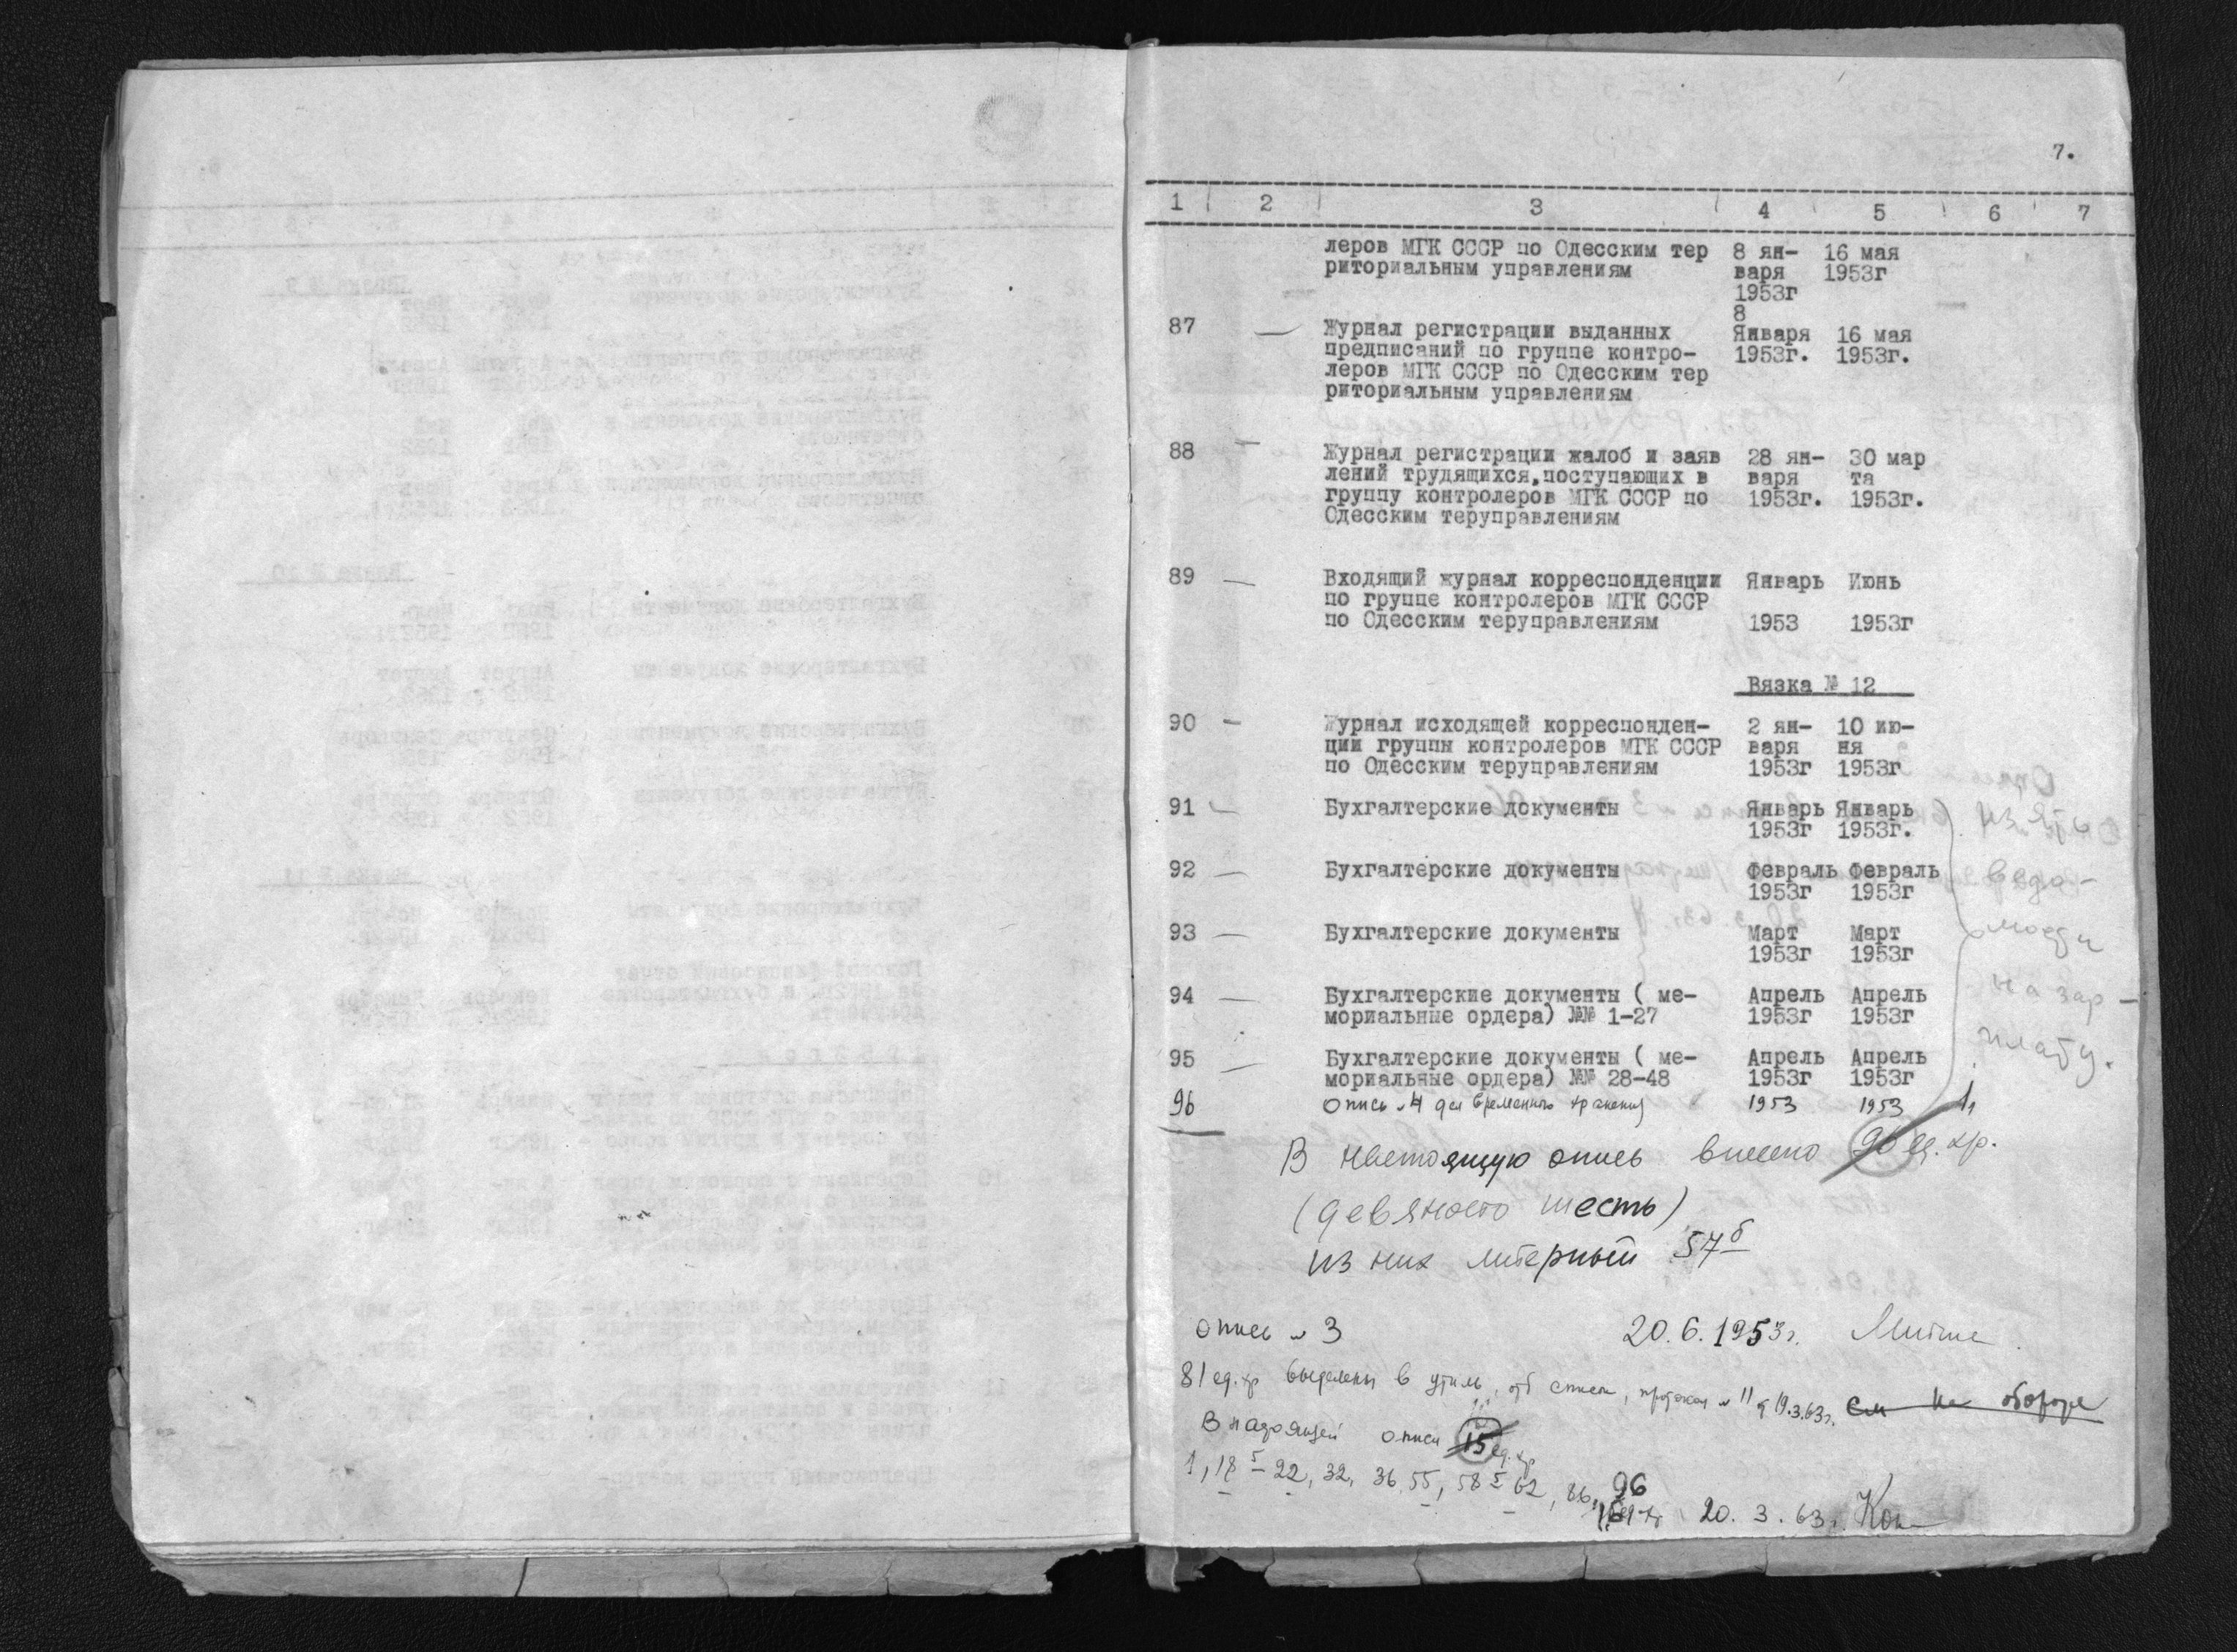 7.
1 2 3 4 5 6 7
леров МГК СССР по Одесским тер 8 ян- 16 мая
риториальным управлениям варя 1953г
1953г
8
87 — Журнал регистрации выданных Января 16 мая
предписаний по группе контро- 1953г. 1953г.
леров МГК СССР по Одесским тер
риториальным управлениям
88 — Журнал регистрации жалоб и заяв 28 ян- 30 мар
лений трудящихся,поступающих в варя та
группу контролеров МГК СССР по 1953г. 1953г.
Одесским теруправлениям
89 — Входящий журнал корреспонденции Январь Июнь
по группе контролеров МГК СССР
по Одесским теруправлениям 1953 1953г
Вязка № 12
90 — Журнал исходящей корреспонден- 2 ян- 10 ию-
ции группы контролеров МГК СССР варя ня
по Одесским теруправлениям 1953г 1953г
91 — Бухгалтерские документы Январь Январь
1953г 1953г.
92 — Бухгалтерские документы Февраль Февраль
1953г 1953г
93 — Бухгалтерские документы Март Март
1953г 1953г
94 — Бухгалтерские документы ( ме- Апрель Апрель
мориальные ордера) №№ 1-27 1953г 1953г
95 — Бухгалтерские документы ( ме- Апрель Апрель
мориальные ордера) №№ 28-48 1953г 1953г
изять
ведо-
мости
на зар-
плату.
96 Опись №4 дел временного хранения 1953 1953
В настоящую опись внесено 96 ед. хр.
(девяносто шесть)
из них литерный 57б
опись № 3 20.6.1953г.
81 ед. хр выделены в утиль, протокол № 11 от 19.3.63г. см на обороте
В настоящей описи 15 ед. хр
1, 18 - 22, 32, 36, 55, 58 - 62, 86, 96
20.3.63г.